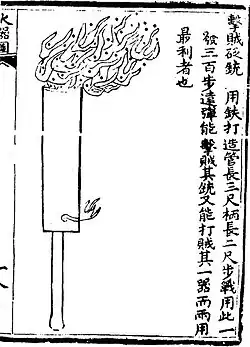 擊賊砭銃　用鉄打造管長三尺柄長二尺步戰用此一
發三百步遠彈能擊賊其銃又能打賊其一器而兩用
最利者也
火器圖